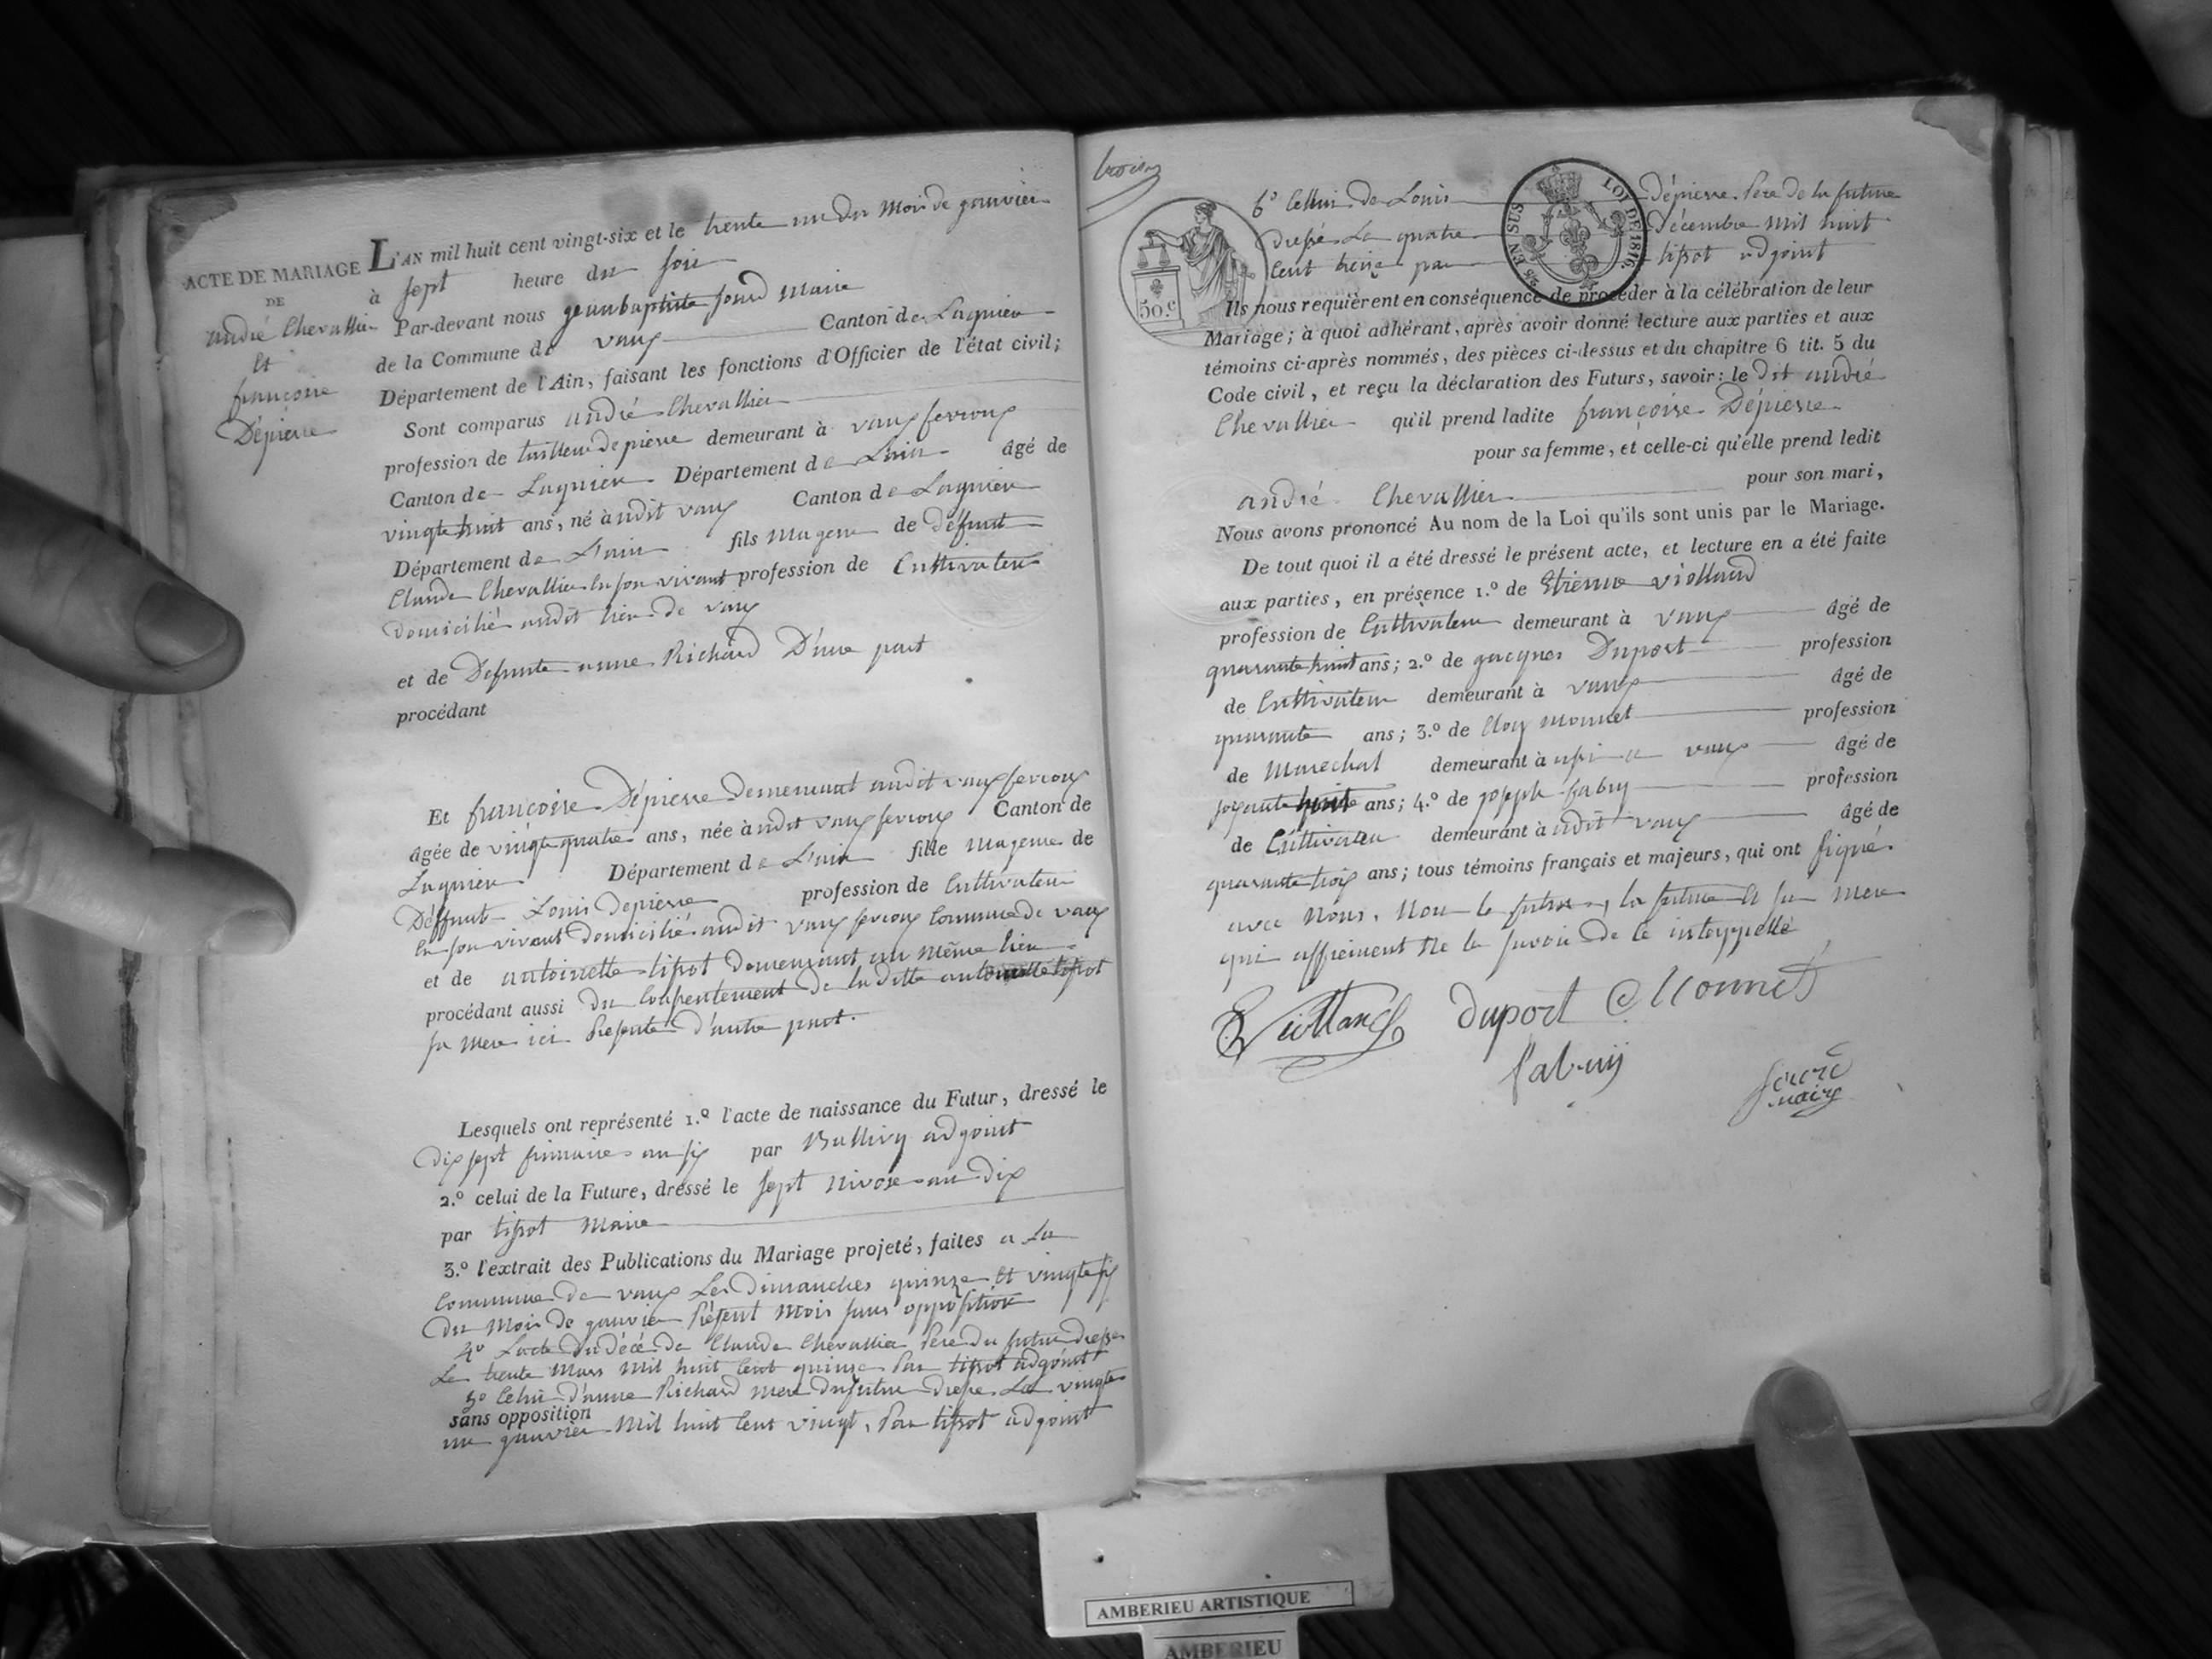 ACTE DE MARIAGE
DE
andré Chevallier
Et
françoise
Dépierre
L'AN mil huit cent vingt-six et le trente un du Mois de ganvier
à sept heure du soir
Par-devant nous geanbaptiste Maire
de la Commune de vaux Canton de Lagnieu
Département de l'Ain, faisant les fonctions d'Officier de l'état civil;
Sont comparus andré Chevallier
profession de tailleur de pierre demeurant à vaux fevroux
Canton de Lagnieu Département de L'ain âgé de
vingt huit ans, né audit vaux Canton de Lagnieu
Département de L'ain fils mageur de défunt
Claude Chevallier En son vivant profession de Cultivateur
domicilié audit lieu de vaux
et de Defunte anne Richard D'une part
procédant
Et françoise Dépierre demeurant audit vaux fevroux
âgée de vingt quatre ans, née audit vaux fevroux Canton de
Lagnieu Département de L'ain fille mageure de
Déffunt Louis Depierre profession de Cultivateur
En son vivant domicilié audit vaux fevroux Commune de vaux
et de antoinette tissot demeurant au même lieu
procédant aussi du Consentement de laditte antoinette tissot
sa mere ici Présente d'autre part.
Lesquels ont représenté 1.º l'acte de naissance du Futur, dressé le
dix sept frimaire an six par Ballivy adgoint
2.º celui de la Future, dressé le sept nivose an dix
par tissot Maire
3.º l'extrait des Publications du Mariage projeté, faites a La
Commune de vaux Les dimanches quinze Et vingt six
du Mois de ganvier Présent Mois sans opposition
4º Lacte du décé de Claude Chevallier Pere du futur dressé
Le trente Mars Mil huit Cent quinze Par tissot adgoint
5º Celui d'anne Richard mere du futur dressé Le vingt
sans opposition
un ganvier Mil huit Cent vingt, Par tissot adgoint
trois
6º Cellui de Louis Dépierre Pere de la future
dressé Le quatre Décembre Mil huit
Cent treize par tissot adgoint
50.c
25 EN SUS
LOI DE 1816.
Ils nous requièrent en conséquence de procéder à la célébration de leur
Mariage; à quoi adhérant, après avoir donné lecture aux parties et aux
témoins ci-après nommés, des pièces ci-dessus et du chapitre 6 tit. 5 du
Code civil, et reçu la déclaration des Futurs, savoir: le dit andré
Chevallier qu'il prend ladite françoise Dépierre
pour sa femme, et celle-ci qu'elle prend ledit
andré Chevallier pour son mari,
Nous avons prononcé Au nom de la Loi qu'ils sont unis par le Mariage.
De tout quoi il a été dressé le présent acte, et lecture en a été faite
aux parties, en présence 1.º de Etienne viollaud
profession de Cultivateur demeurant à vaux âgé de
quarante huit ans; 2.º de gacques Duport profession
de Cultivateur demeurant à vaux âgé de
quarante ans; 3.º de Eloy monnet profession
de Marechal demeurant à vaux âgé de
soixante huit ans; 4.º de joseph fabry profession
de Cultivateur demeurant à udit vaux âgé de
quarante trois ans; tous témoins français et majeurs, qui ont signé
avec Nous, Non le futur, la future Et sa mere
qui affirment Ne le savoir de ce interppellé
Duport Monnet
fabrij
maire
AMBERIEU ARTISTIQUE
AMBERIEU